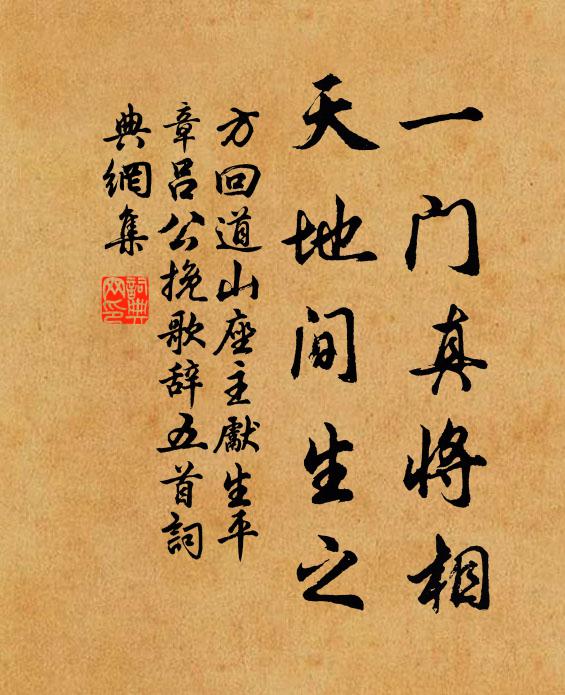 一门真将相
天地间生之
方回道山座主獻生平
章吕公挽歌辞五首詞
典網集
詞典
网印